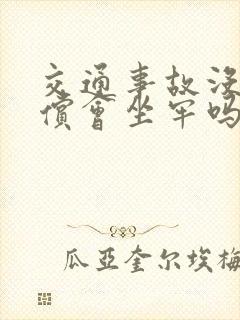 交通事故没
偿会坐牢吗
瓜亚奎尔埃梅